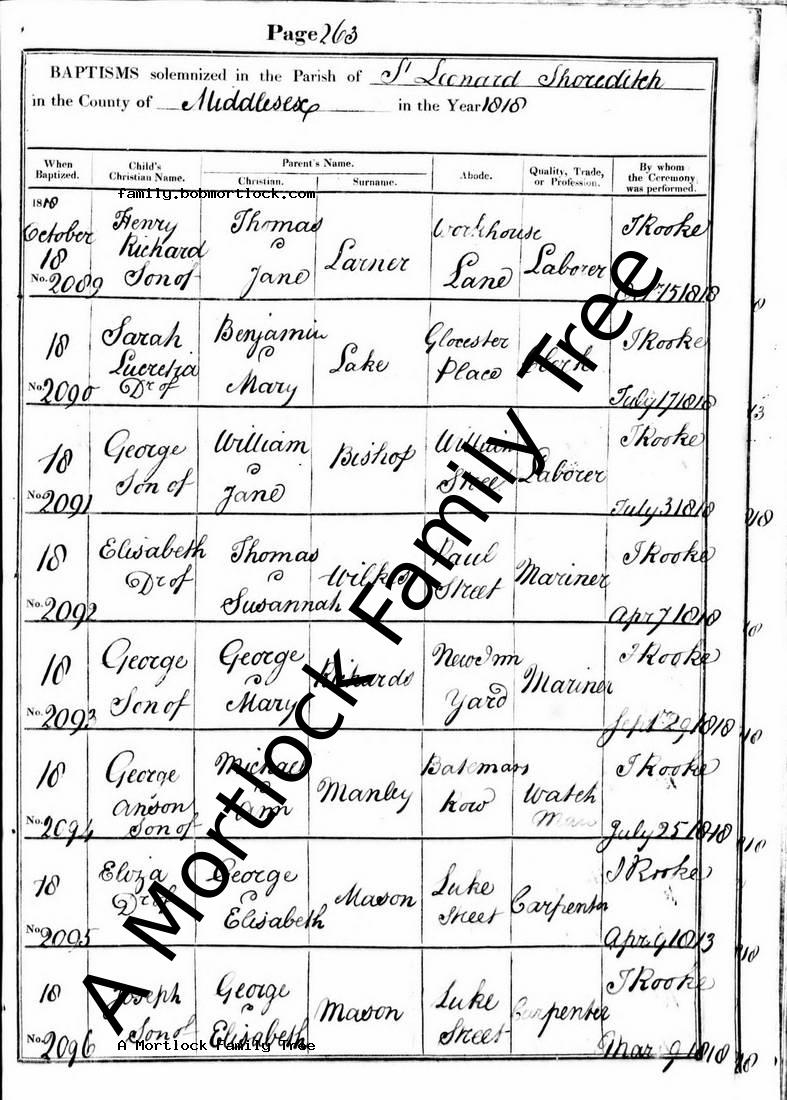 Page 263
BAPTISMS solemnized in the Parish of St Leonard Shoreditch
in the County of Middlesex in the Year 1818
When Baptized.
Child's Christian Name.
Parent's Name.
Christian.
Surname.
Abode.
Quality, Trade, or Profession.
By whom the Ceremony was performed.
family.bobmortlock.com
1818
October 18
No. 2089
Henry Richard Son of
Thomas & Jane
Larner
Workhouse Lane
Laborer
T Rooke
15 1818
18
No. 2090
Sarah Lucretia Dr of
Benjamin & Mary
Lake
Glocester Place
T Rooke
July 17 1818
18
No. 2091
George Son of
William & Jane
Bishop
William Street
Laborer
T Rooke
July 3 1818
18
No. 2092
Elisabeth Dr of
Thomas & Susannah
Paul Street
Mariner
T Rooke
Apr 7 1818
18
No. 2093
George Son of
George & Mary
Rickards
New Inn Yard
Mariner
T Rooke
Sept 29 1818
18
No. 2094
George Anson Son of
Michael & Ann
Manley
Batemans Row
Watch Man
T Rooke
July 25 1818
18
No. 2095
Eliza Dr of
George & Elisabeth
Mason
Luke Street
Carpenter
T Rooke
Apr 9 1813
18
No. 2096
Joseph Son of
George & Elizabeth
Mason
Luke Street
Carpenter
T Rooke
Mar 9 1818
A Mortlock Family Tree
A Mortlock Family Tree